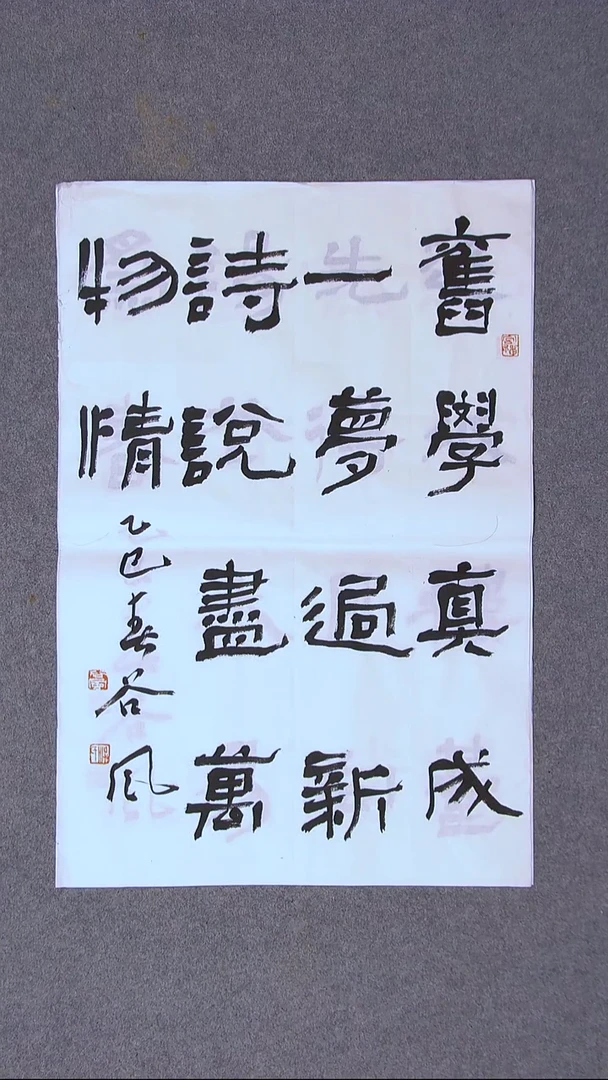 舊學真成
一夢過新
詩說盡萬
物情
乙巳春谷風